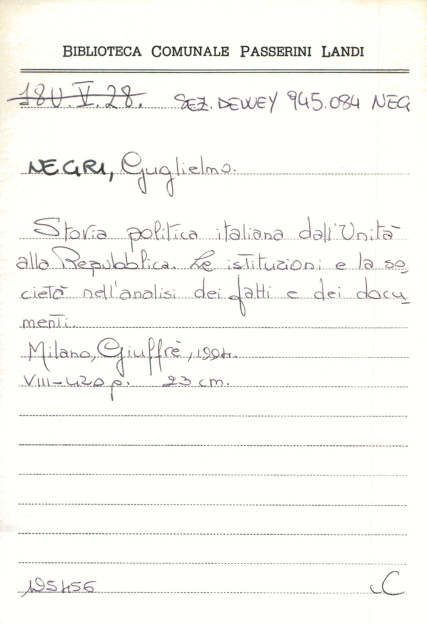 BIBLIOTECA COMUNALE PASSERINI LANDI
18U.V.28. SEZ. DEWEY 945.084 NEG
NEGRI, Guglielmo.
Storia politica italiana dall'Unità
alla Repubblica. Le istituzioni e la so_
cietà nell'analisi dei fatti e dei docu_
menti.
Milano, Giuffrè, 1994.
VIII-420 p. 23 cm.
C